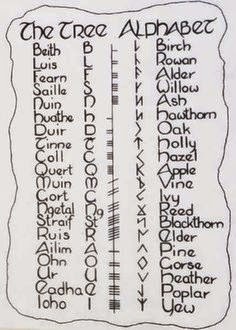 The Tree Alphabet
Beith B Birch
Luis L Rowan
Fearn F Alder
Saille S Willow
Nuin N Ash
Huathe h Hawthorn
Duir D Oak
Tinne T Holly
Coll C Hazel
Quert Q Apple
Muin M Vine
Gort G Ivy
Ngetal Ng Reed
Straif St Blackthorn
Ruis R Elder
Ailim A Pine
Ohn O Gorse
Ur U Heather
Eadha E Poplar
Ioho I Yew